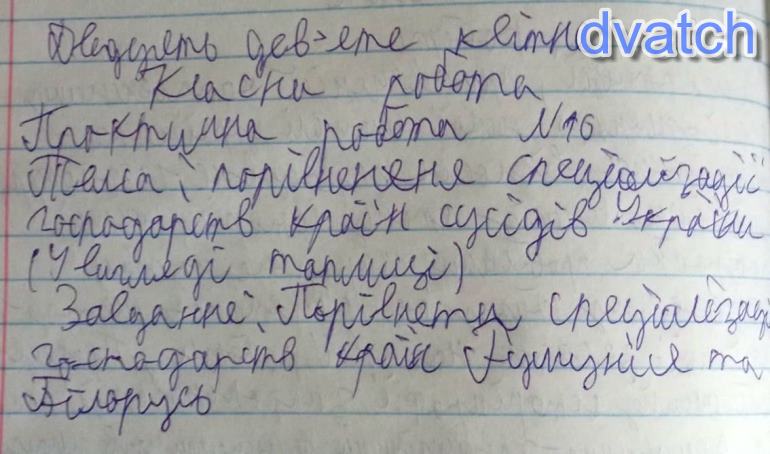 Двадцять дев'яте квітн
dvatch
Класна робота
Практична робота №16
Тема: порівнененя спеціалізації
господарств країн сусідів України
(У вигляді таблиці)
Завдання: Порівняти спеціалізаці
господарств країн Румунія та
Білорусь